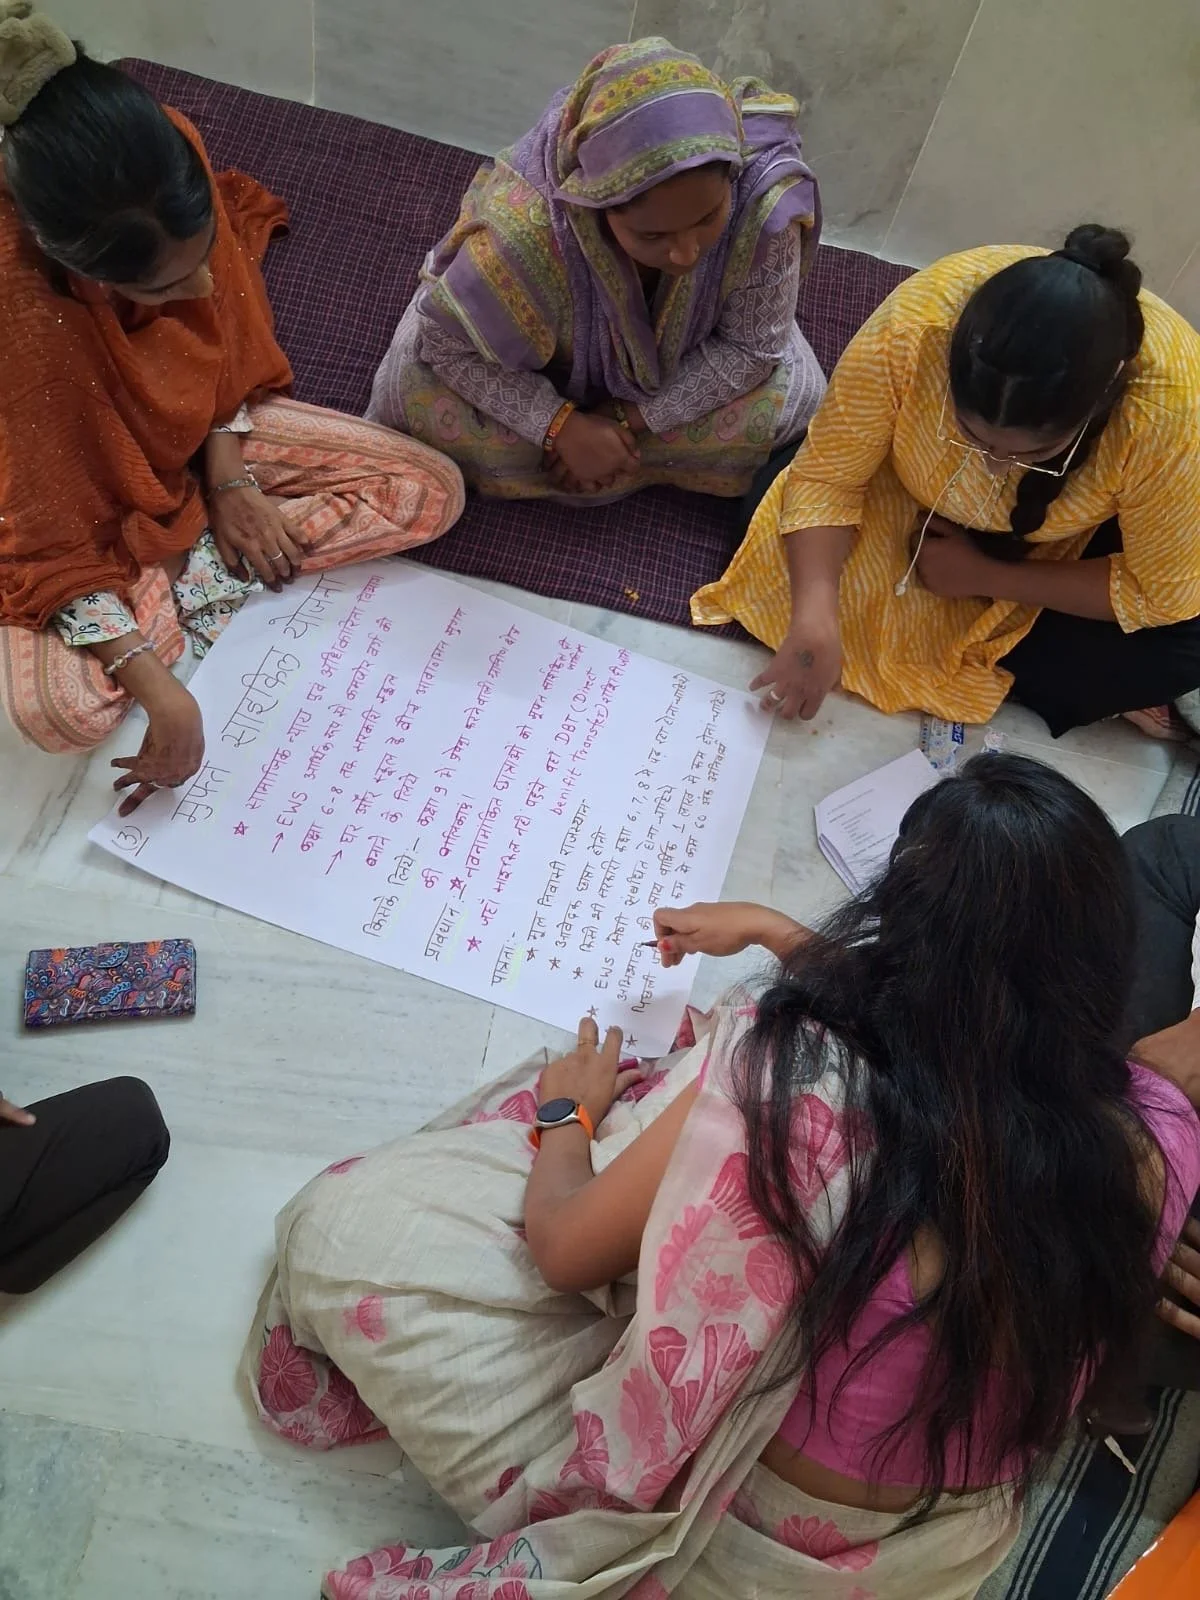 (3)
मुफ्त साइकिल योजना
☆ सामाजिक न्याय एवं अधिकारिता विभाग
→ EWS आर्थिक रूप से कमजोर वर्ग की
कक्षा 6-8 तक सरकारी स्कूल
→ घर और स्कूल के बीच आवागमन सुगम
बनाने के लिये
किसके लिये :- कक्षा 9 में प्रवेश करने वाली ग्रामीण क्षेत्र
की बालिकाएं।
प्रावधान :- ★ नवनामांकित छात्राओं को मुफ्त साईकिल दी
★ जहां साइकिल नहीं पहुंचे वहां DBT (Direct
benifit transfer) राशि दी
पात्रता :-
★ मूल निवासी राजस्थान
★ आवेदक छात्रा होनी
★ किसी भी सरकारी कक्षा 6, 7, 8 में पढ़ रहा होना चाहिये
☆ EWS श्रेणी से संबंधित होना चाहिये
अभिभावक की आय वार्षिक 1 लाख से कम होना चाहिये
☆ पिछली कम से कम 60 अंक अनिवार्य